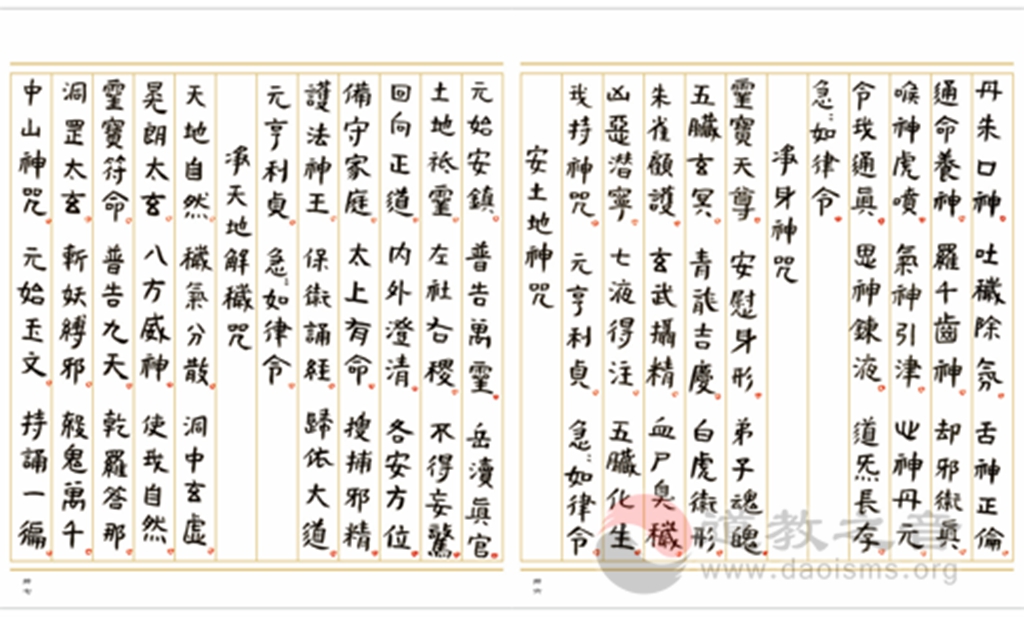 丹朱口神 吐穢除氛 舌神正倫
通命養神 羅千齒神 却邪衛眞
喉神虎噴 氣神引津 心神丹元
令我通眞 思神鍊液 道炁長存
急〻如律令
淨身神咒
靈寶天尊 安慰身形 弟子魂魄
五臟玄冥 青龍吉慶 白虎衛形
朱雀顧護 玄武攝精 血尸臭穢
凶惡潛寧 七液得注 五臟化生
我持神咒 元亨利貞 急〻如律令
安土地神咒
元始安鎮 普告萬靈 岳瀆眞官
土地祇靈 左社右稷 不得妄驚
回向正道 內外澄清 各安方位
備守家庭 太上有命 搜捕邪精
護法神王 保衛誦経 歸依大道
元亨利貞 急〻如律令
淨天地解穢咒
天地自然 穢氣分散 洞中玄虛
晃朗太玄 八方威神 使我自然
靈寶符命 普告九天 乾羅答那
洞罡太玄 斬妖縛邪 殺鬼萬千
中山神咒 元始玉文 持誦一徧
道教之音
www.daoisms.org